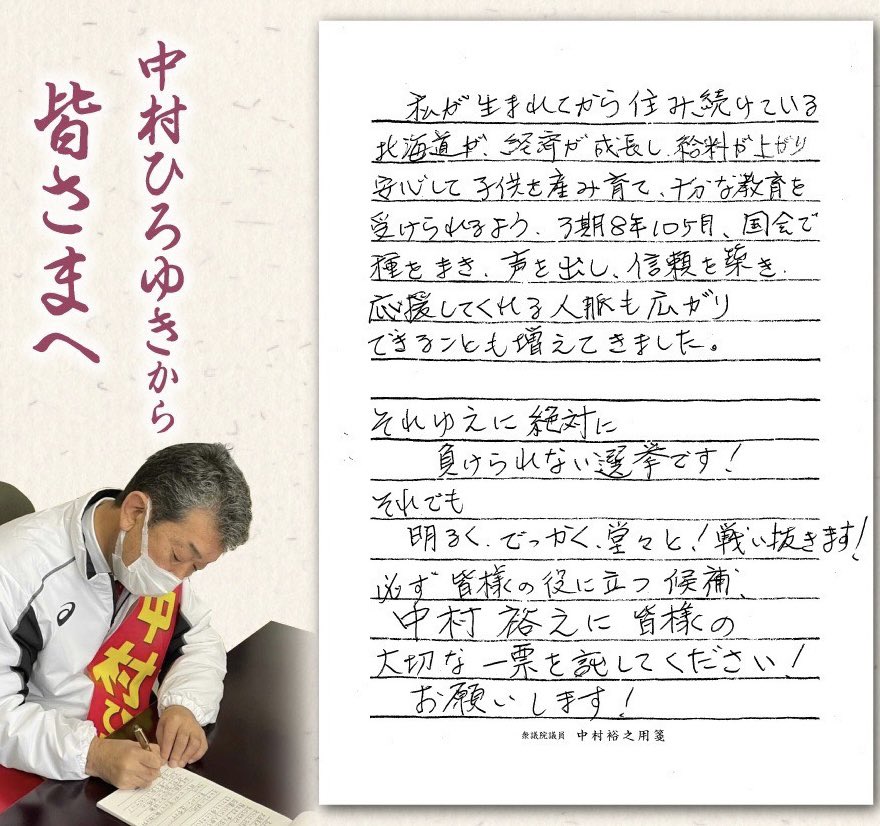 中村ひろゆきから
皆さまへ
私が生まれてから住み続けている
北海道が、経済が成長し、給料が上がり
安心して子供を産み育て、十分な教育を
受けられるよう、3期8年10ヶ月、国会で
種をまき、声を出し、信頼を築き、
応援してくれる人脈も広がり
できることも増えてきました。
それゆえに絶対に
負けられない選挙です!
それでも
明るく、でっかく、堂々と!戦い抜きます!
必ず皆様の役に立つ候補、
中村裕之に皆様の
大切な一票を託してください!
お願いします!
衆議院議員 中村裕之用箋
中村